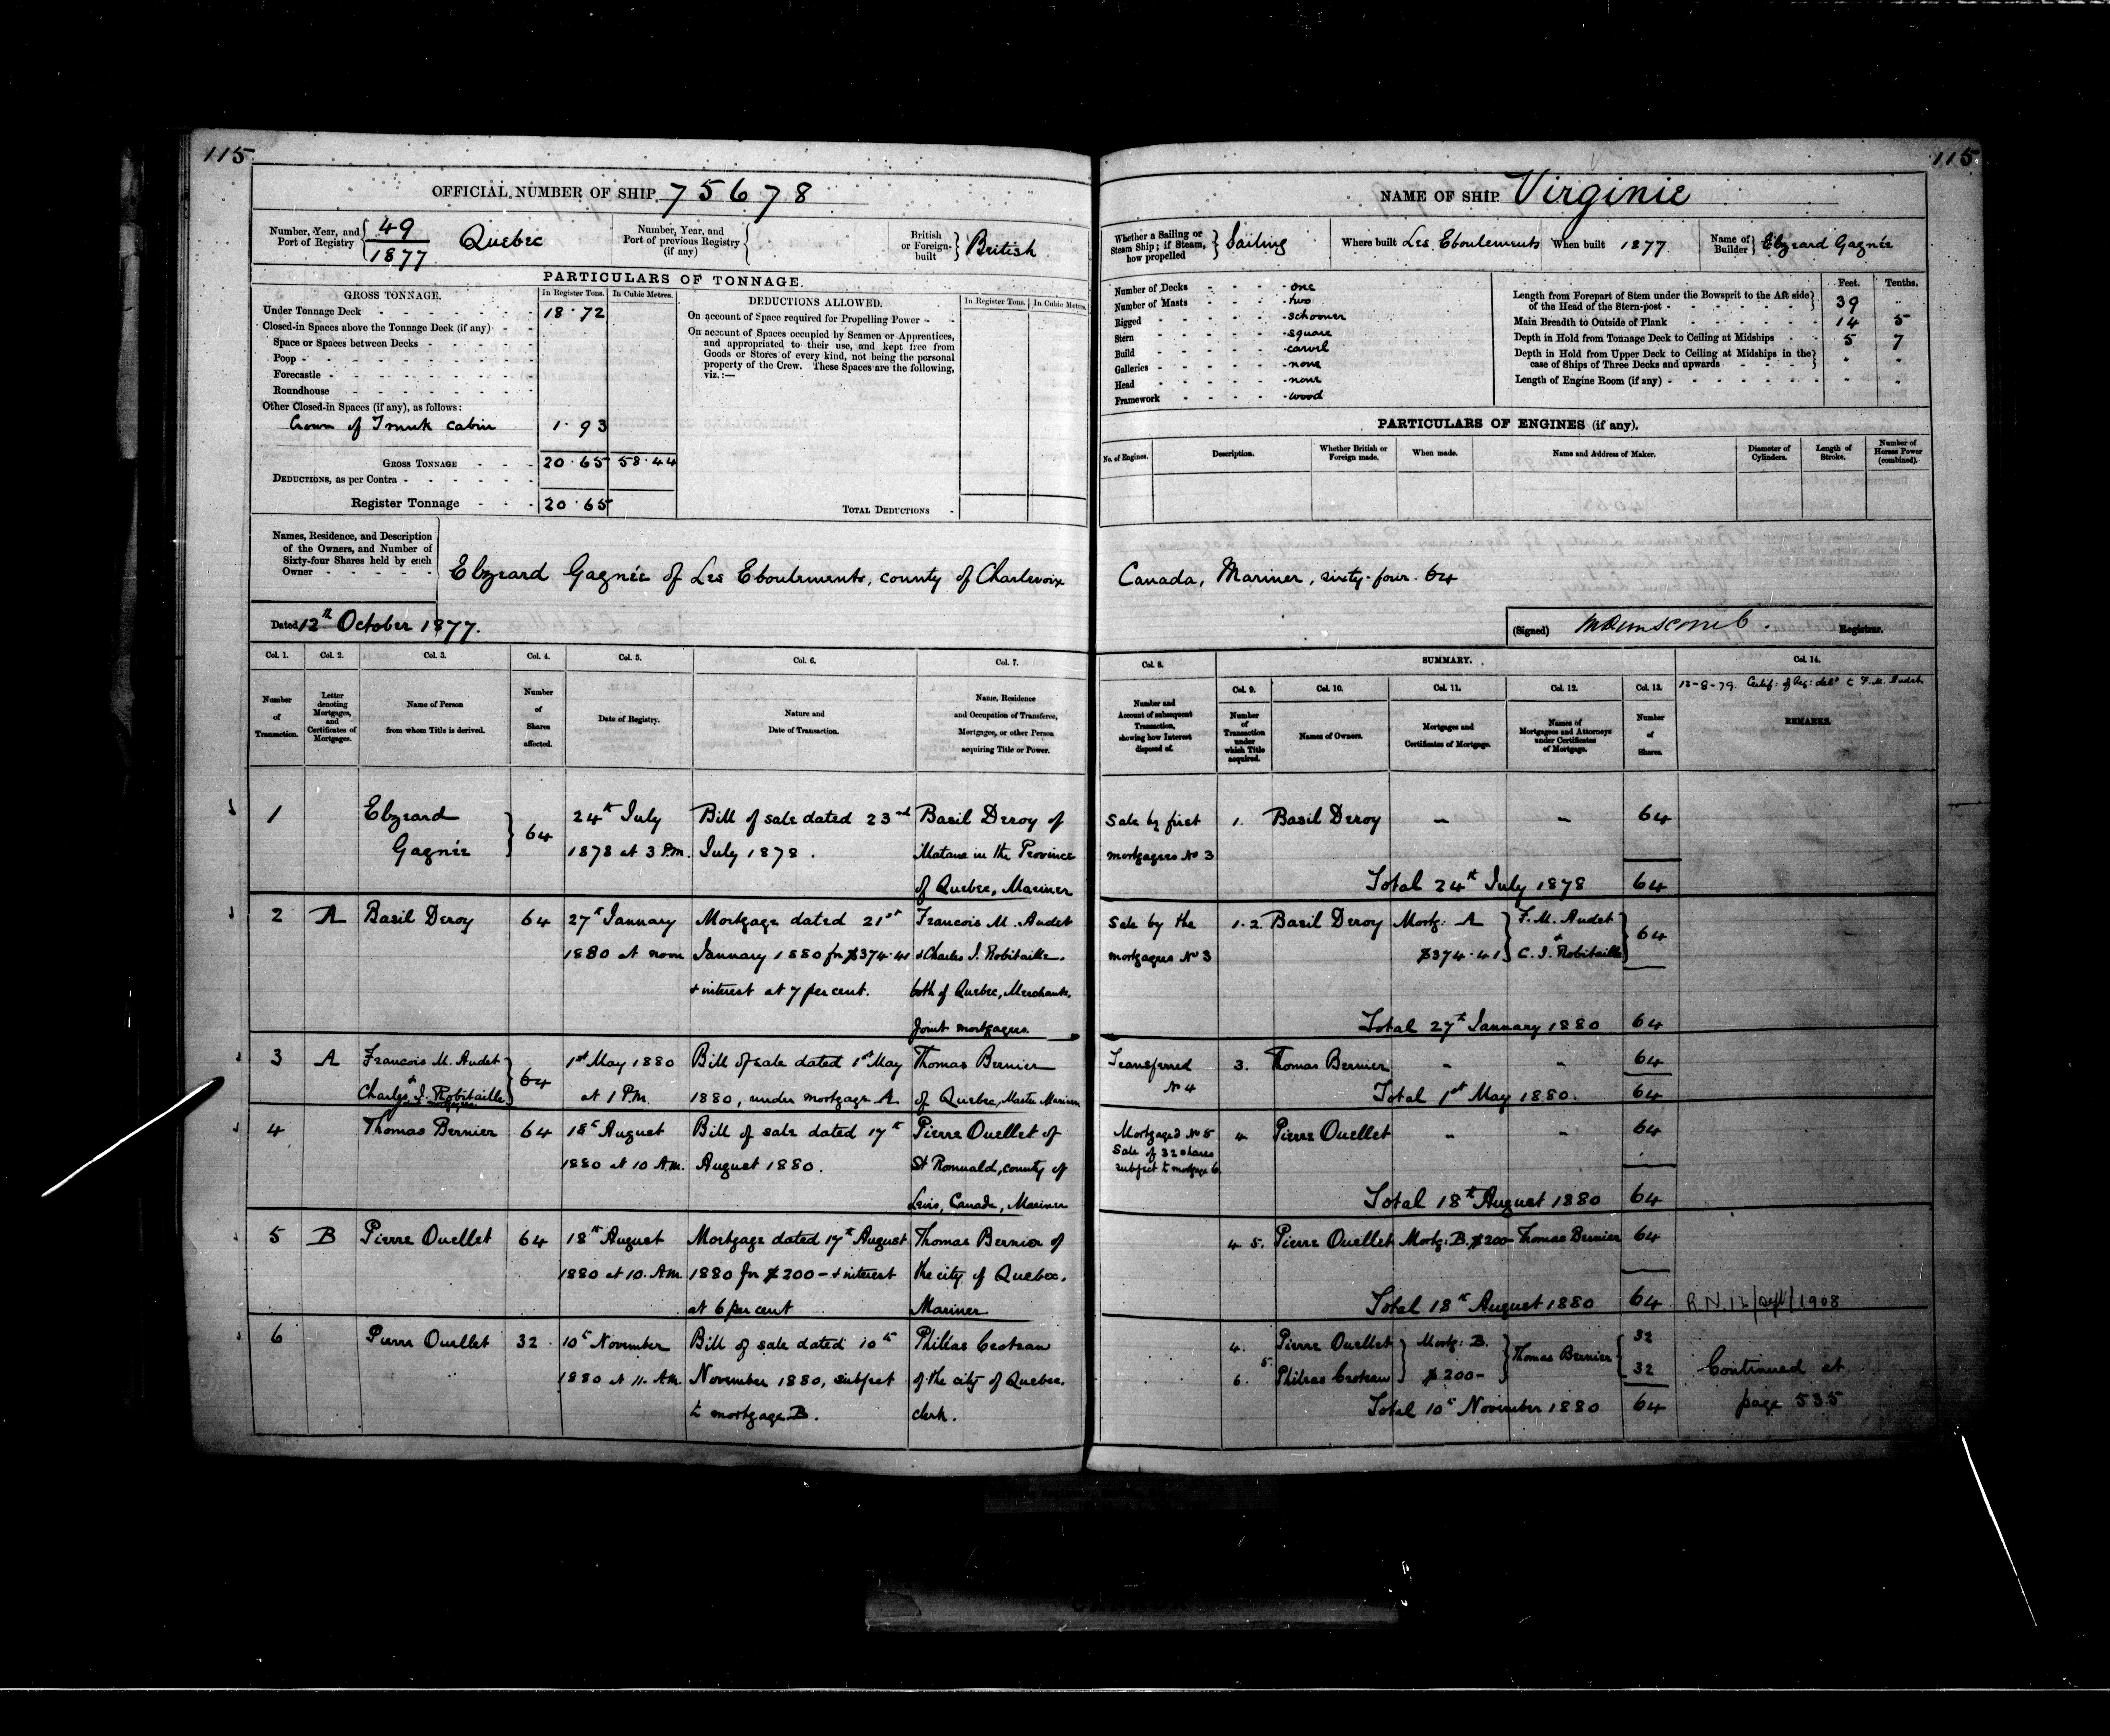 115
115
OFFICIAL NUMBER OF SHIP 75678
Number, Year, and Port of Registry { 49 / 1877 Quebec
Number, Year, and Port of previous Registry (if any) {
British or Foreign-built } British
PARTICULARS OF TONNAGE.
GROSS TONNAGE.
In Register Tons.
In Cubic Metres.
Under Tonnage Deck - 18.72
Closed-in Spaces above the Tonnage Deck (if any) -
Space or Spaces between Decks -
Poop -
Forecastle -
Roundhouse -
Other Closed-in Spaces (if any), as follows:
Crown of Trunk cabin 1.93
GROSS TONNAGE - 20.65 58.44
DEDUCTIONS, as per Contra -
Register Tonnage - 20.65
DEDUCTIONS ALLOWED.
In Register Tons.
In Cubic Metres.
On account of Space required for Propelling Power -
On account of Spaces occupied by Seamen or Apprentices,
and appropriated to their use, and kept free from
Goods or Stores of every kind, not being the personal
property of the Crew. These Spaces are the following,
viz.:—
TOTAL DEDUCTIONS -
NAME OF SHIP Virginie
Whether a Sailing or Steam Ship; if Steam, how propelled } Sailing
Where built Les Eboulements
When built 1877
Name of Builder } Elzeard Gagnée
Number of Decks - one
Number of Masts - two
Rigged - schooner
Stern - square
Build - carvel
Galleries - none
Head - none
Framework - wood
Feet. Tenths.
Length from Forepart of Stem under the Bowsprit to the Aft side of the Head of the Stern-post - 39 "
Main Breadth to Outside of Plank - 14 5
Depth in Hold from Tonnage Deck to Ceiling at Midships - 5 7
Depth in Hold from Upper Deck to Ceiling at Midships in the case of Ships of Three Decks and upwards - " "
Length of Engine Room (if any) - " "
PARTICULARS OF ENGINES (if any).
No. of Engines.
Description.
Whether British or Foreign made.
When made.
Name and Address of Maker.
Diameter of Cylinders.
Length of Stroke.
Number of Horses Power (combined).
Names, Residence, and Description
of the Owners, and Number of
Sixty-four Shares held by each
Owner -
Elzeard Gagnée of Les Eboulements, county of Charlevoix
Canada, Mariner, sixty-four. 64
Dated 12th October 1877.
(Signed) Registrar.
Col. 1. Number of Transaction.
Col. 2. Letter denoting Mortgages, and Certificates of Mortgages.
Col. 3. Name of Person from whom Title is derived.
Col. 4. Number of Shares affected.
Col. 5. Date of Registry.
Col. 6. Nature and Date of Transaction.
Col. 7. Name, Residence and Occupation of Transferee, Mortgagee, or other Person acquiring Title or Power.
Col. 8. Number and Account of subsequent Transaction, showing how Interest disposed of.
SUMMARY.
Col. 9. Number of Transaction under which Title acquired.
Col. 10. Names of Owners.
Col. 11. Mortgages and Certificates of Mortgage.
Col. 12. Names of Mortgagees and Attorneys under Certificates of Mortgage.
Col. 13. Number of Shares.
Col. 14.
12-8-79. Certif: of Reg: F. M. Audet
REMARKS.
1 Elzeard Gagnée } 64
24th July 1878 at 3 P.M.
Bill of sale dated 23rd July 1878.
Basil Deroy of Matane in the Province of Quebec, Mariner
Sale by first mortgagees No 3
1. Basil Deroy - - 64
Total 24th July 1878 64
2 A Basil Deroy 64
27th January 1880 at noon
Mortgage dated 21st January 1880 for $374.41 + interest at 7 per cent.
Francois M. Audet & Charles J. Robitaille, both of Quebec, Merchants, Joint mortgagees.
Sale by the mortgagees No 3
1.2. Basil Deroy Mortg: A $374.41 } F. M. Audet & C. J. Robitaille } 64
Total 27th January 1880 64
3 A Francois M. Audet & Charles J. Robitaille mortgagees } 64
1st May 1880 at 1 P.M.
Bill of sale dated 1st May 1880, under mortgage A
Thomas Bernier of Quebec, Master Mariner
Transferred No 4
3. Thomas Bernier - - 64
Total 1st May 1880. 64
4 Thomas Bernier 64
18th August 1880 at 10 A.M.
Bill of sale dated 17th August 1880.
Pierre Ouellet of St Romuald, county of Levis, Canada, Mariner
Mortgaged No 5 Sale of 32 shares subject to mortgage 6
4 Pierre Ouellet - - 64
Total 18th August 1880 64
5 B Pierre Ouellet 64
18th August 1880 at 10. A.M.
Mortgage dated 17th August 1880 for $200- + interest at 6 per cent
Thomas Bernier of the city of Quebec, Mariner
4 5. Pierre Ouellet Mortg: B. $200- Thomas Bernier 64
Total 18th August 1880 64
R.N. 12/Sept/1908
6 Pierre Ouellet 32
10th November 1880 at 11. A.M.
Bill of sale dated 10th November 1880, subject to mortgage B.
Phileas Croteau of the city of Quebec, clerk.
4. Pierre Ouellet } Mortg: B. } Thomas Bernier { 32
5. 6. Phileas Croteau } $200- 32
Total 10th November 1880 64
Continued at
page 535